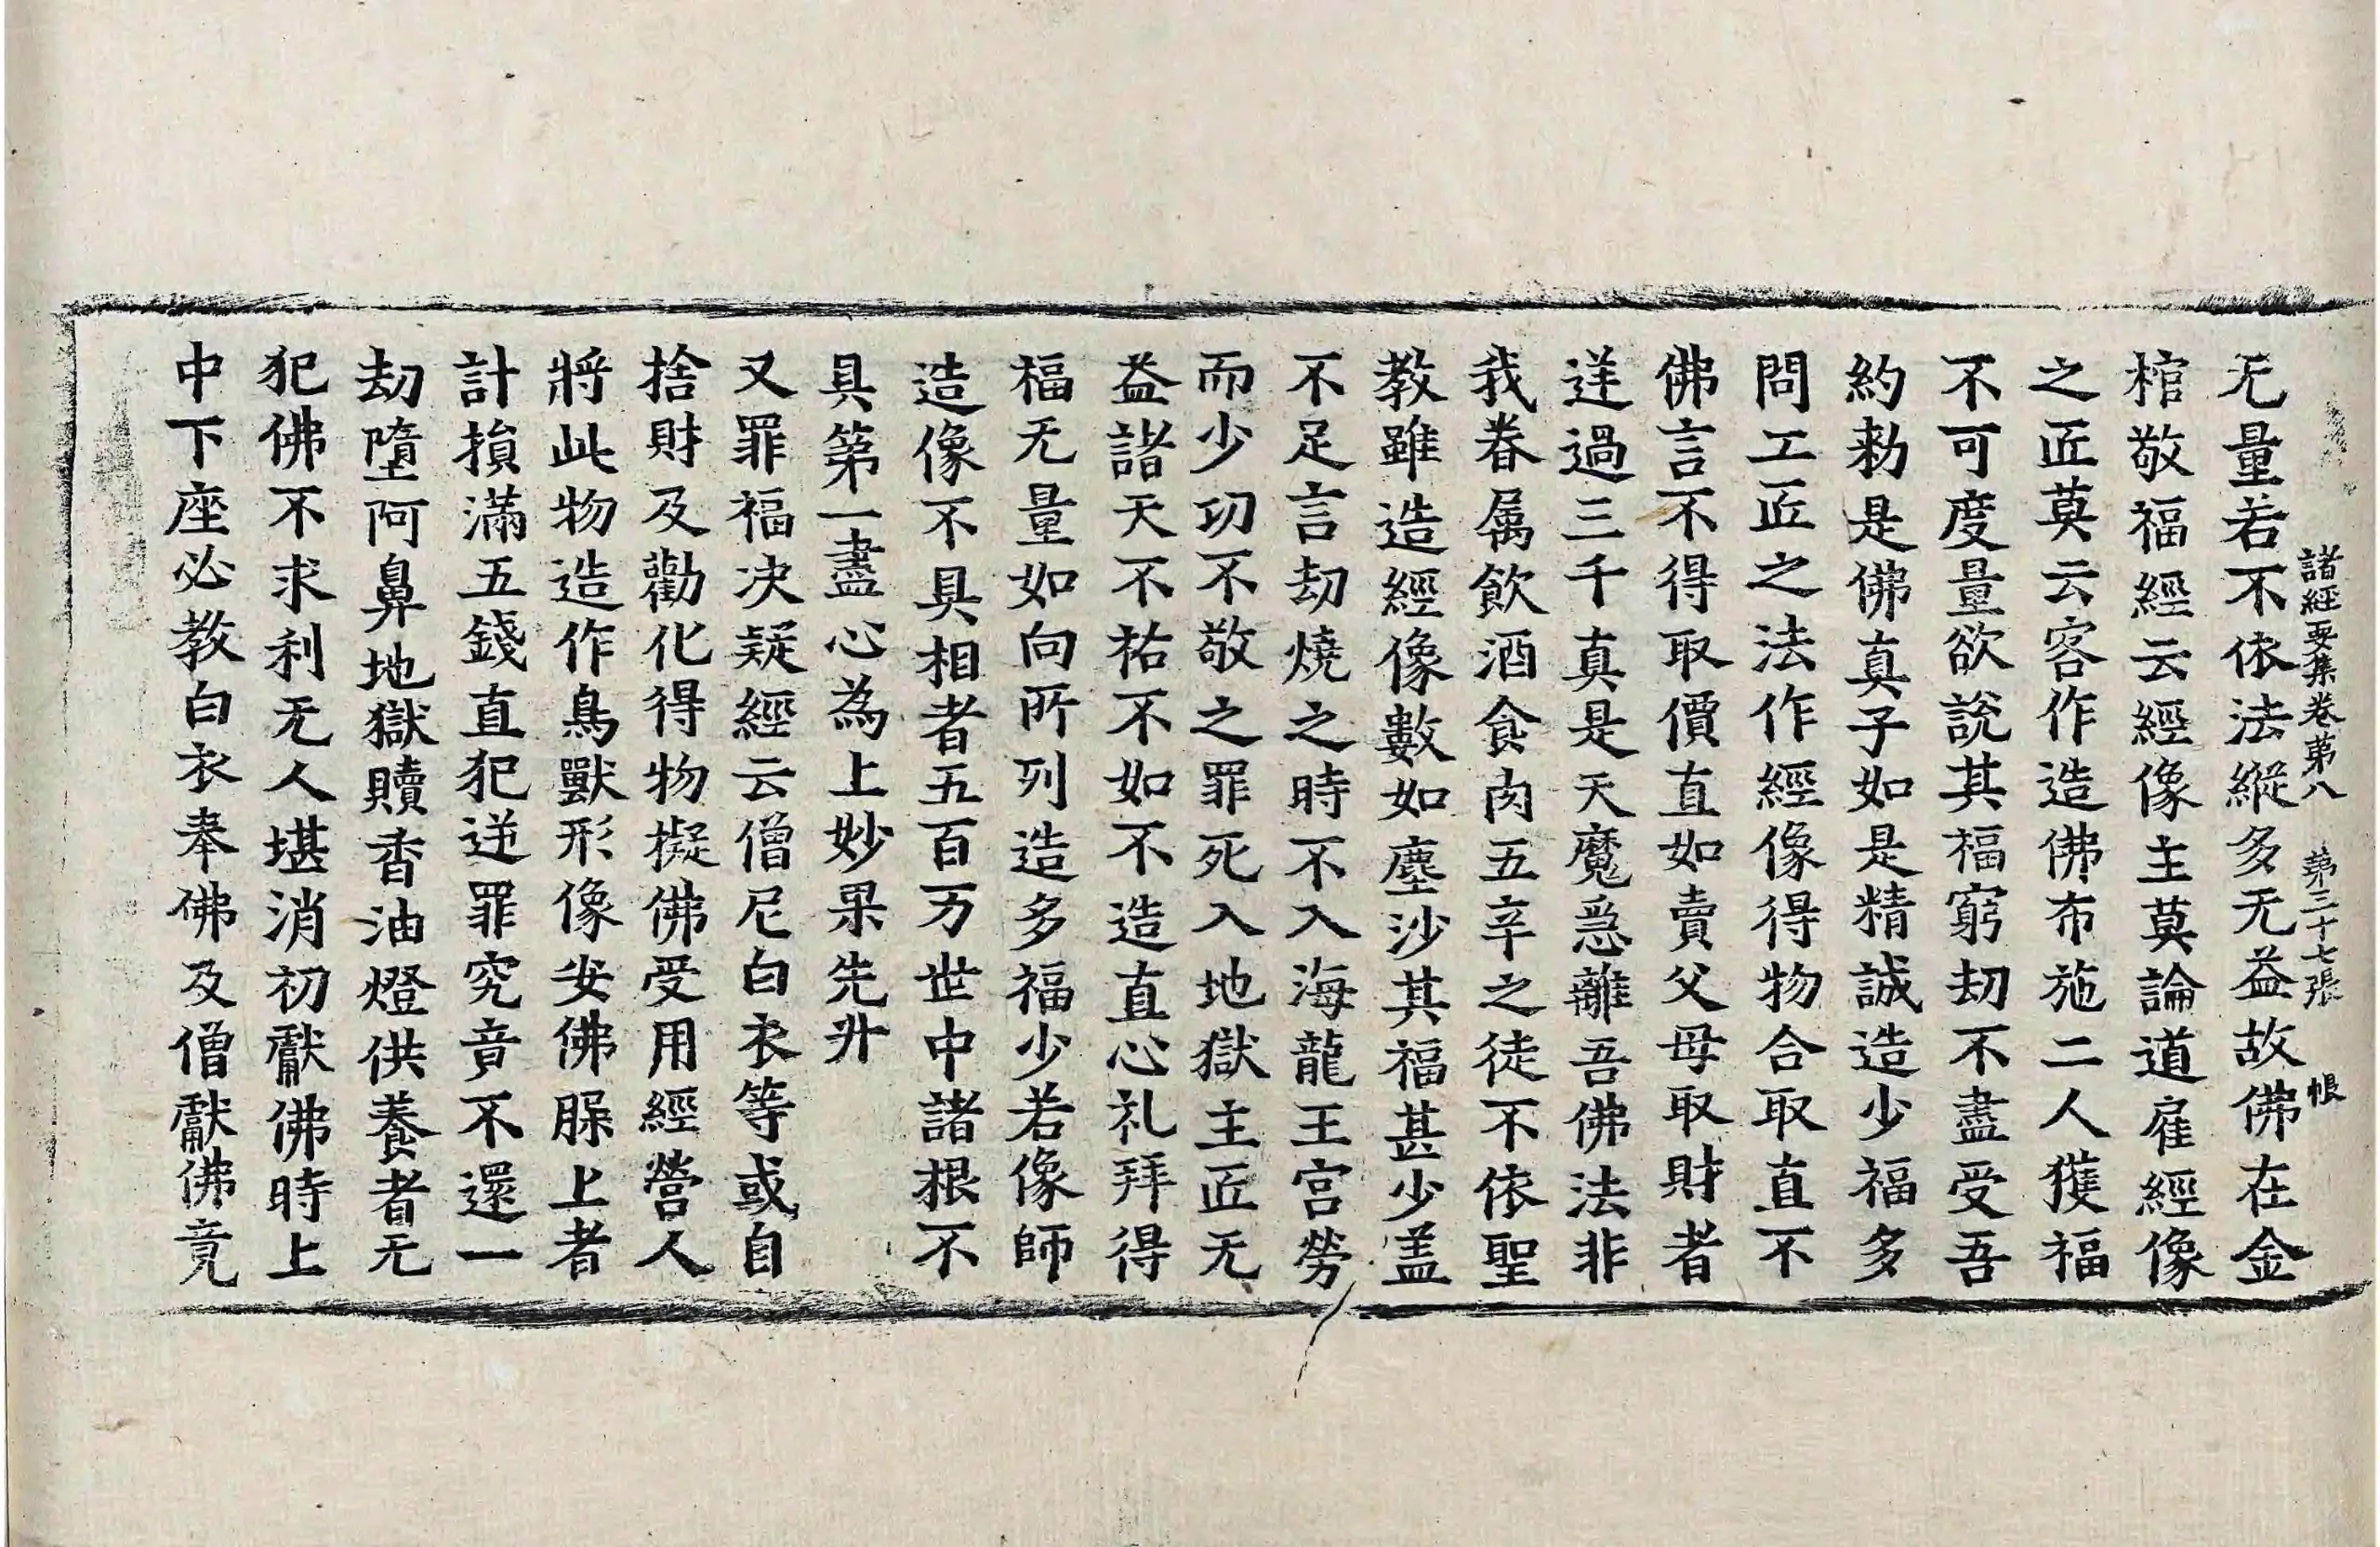 諸經要集卷第八　第二十七張　帳
无量若不依法縱多无益故佛在金
棺敬福經云經像主莫論道雇經像
之匠莫云客作造佛布施二人獲福
不可度量欲說其福窮劫不盡受吾
約勑是佛真子如是精誠造少福多
問工匠之法作經像得物合取直不
佛言不得取價直如賣父母取財者
逆過三千真是天魔急離吾佛法非
我眷属飲酒食肉五辛之徒不依聖
教雖造經像數如塵沙其福甚少盖
不足言劫燒之時不入海龍王宫勞
而少功不敬之罪死入地獄主匠无
益諸天不祐不如不造直心礼拜得
福无量如向所列造多福少若像師
造像不具相者五百万世中諸根不
具第一盡心為上妙果先升
又罪福决疑經云僧尼白衣等或自
捨財及勸化得物擬佛受用經營人
將此物造作鳥獸形像安佛𦜘上者
計損滿五錢直犯逆罪究竟不還一
劫墮阿鼻地獄贖香油燈供養者无
犯佛不求利无人堪消初獻佛時上
中下座必教白衣奉佛及僧獻佛竟